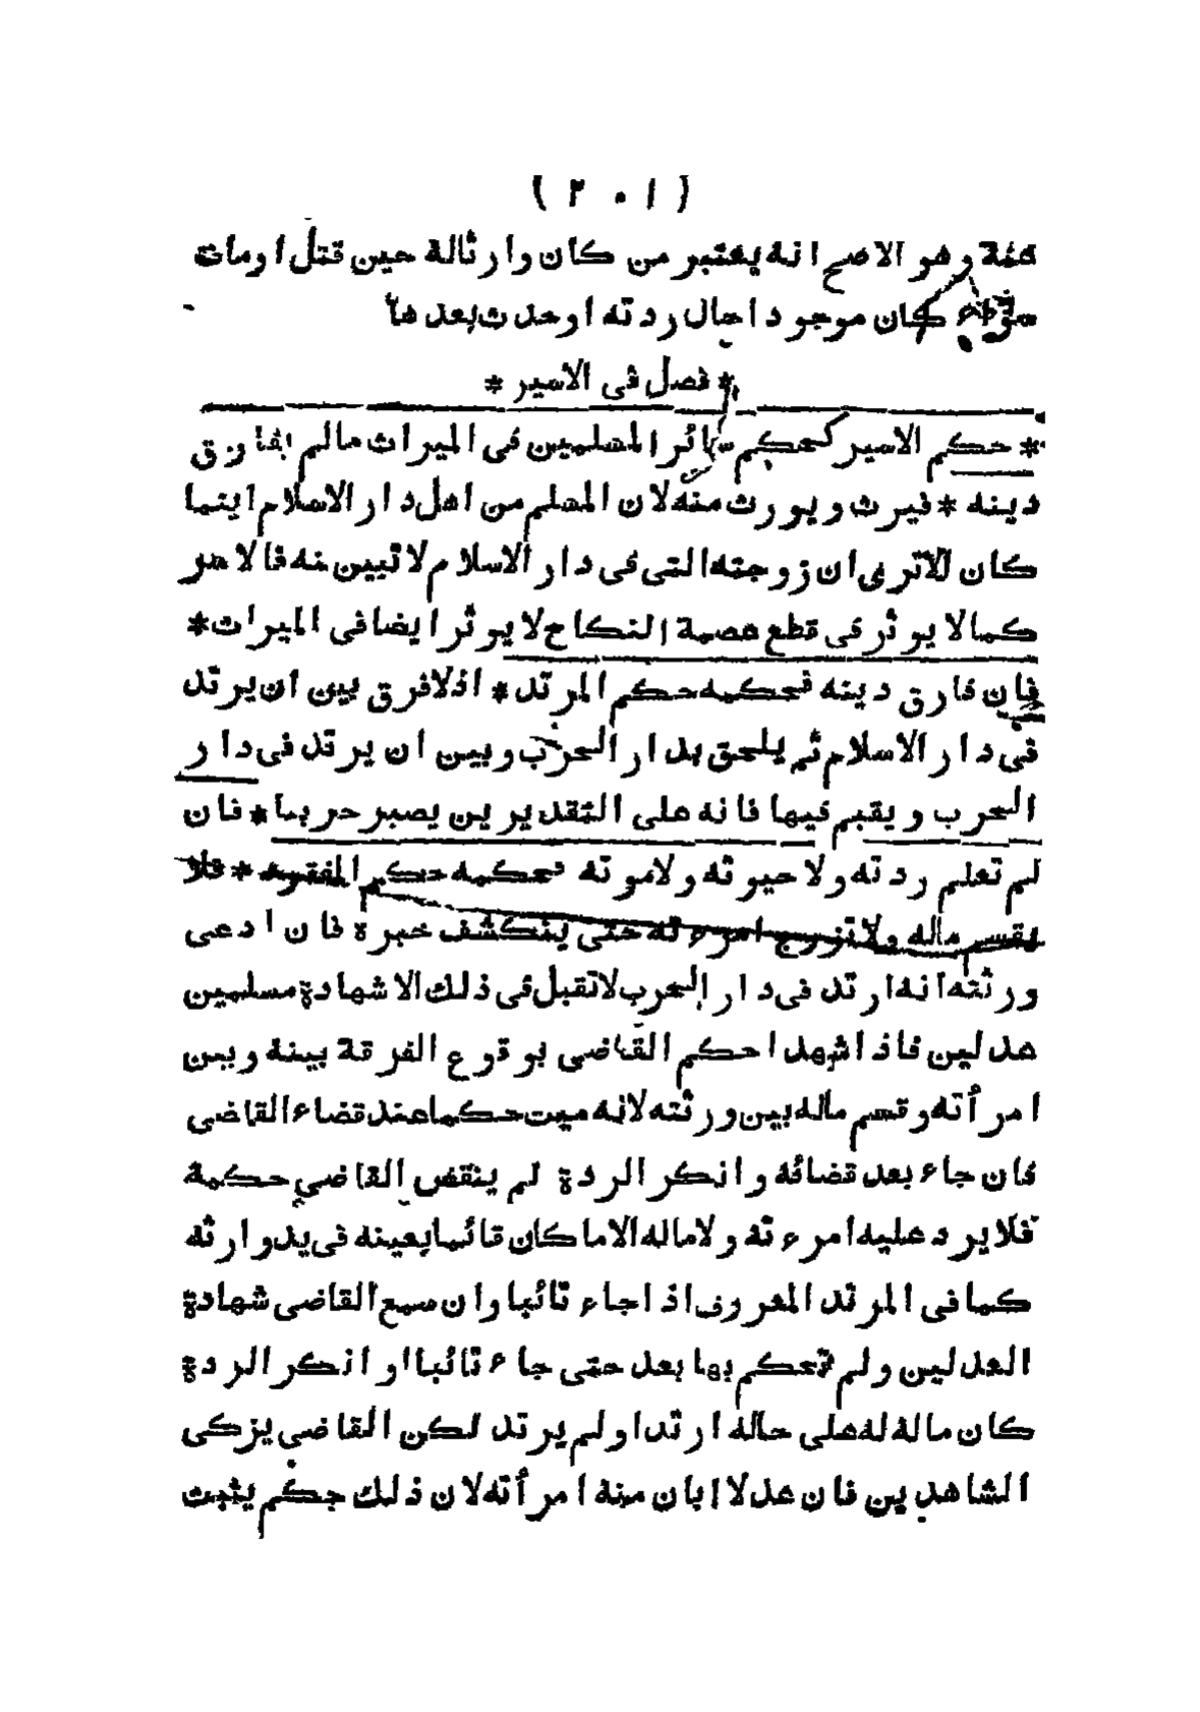 ( ٢٠١ )
عنه وهو الاصح انه يعتبر من كان وارثاله حين قتل او مات
سواء كان موجودا حال ردته او حدث بعدها
* فصل فى الاسير *
* حكم الاسير كحكم سائر المسلمين فى الميراث مالم يفارق
دينه * فيرث ويورث منه لان المسلم من اهل دار الاسلام اينما
كان الاترى ان زوجته التى فى دار الاسلام لاتبين منه فالاسر
كما لا يوثر فى قطع عصمة النكاح لا يوثر ايضا فى الميراث *
فان فارق دينه فحكمه حكم المرتد * اذ لافرق بين ان يرتد
فى دار الاسلام ثم يلحق بدار الحرب وبين ان يرتد فى دار
الحرب ويقيم فيها فانه على التقديرين يصير حربيا * فان
لم تعلم ردته ولا حيوته ولا موته فحكمه حكم المفقود * فلا
يقسم ماله ولا تزوج امرءته حتى ينكشف خبره فان ادعى
ورثته انه ارتد فى دار الحرب لا تقبل فى ذلك الا شهادة مسلمين
عدلين فاذا شهدا حكم القاضى بوقوع الفرقة بينه وبين
امرأته وقسم ماله بين ورثته لانه ميت حكما عند قضاء القاضى
فان جاء بعد قضائه وانكر الردة لم ينقض القاضى حكمه
فلا يرد عليه امرءته ولا ماله الا ما كان قائما بعينه فى يد وارثه
كما فى المرتد المعروف اذا جاء تائبا وان سمع القاضى شهادة
العدلين ولم تحكم بها بعد حتى جاء تائبا او انكر الردة
كان ماله له على حاله ارتد او لم يرتد لكن القاضى يزكى
الشاهدين فان عدلا ابان منه امرأته لان ذلك حكم يثبت